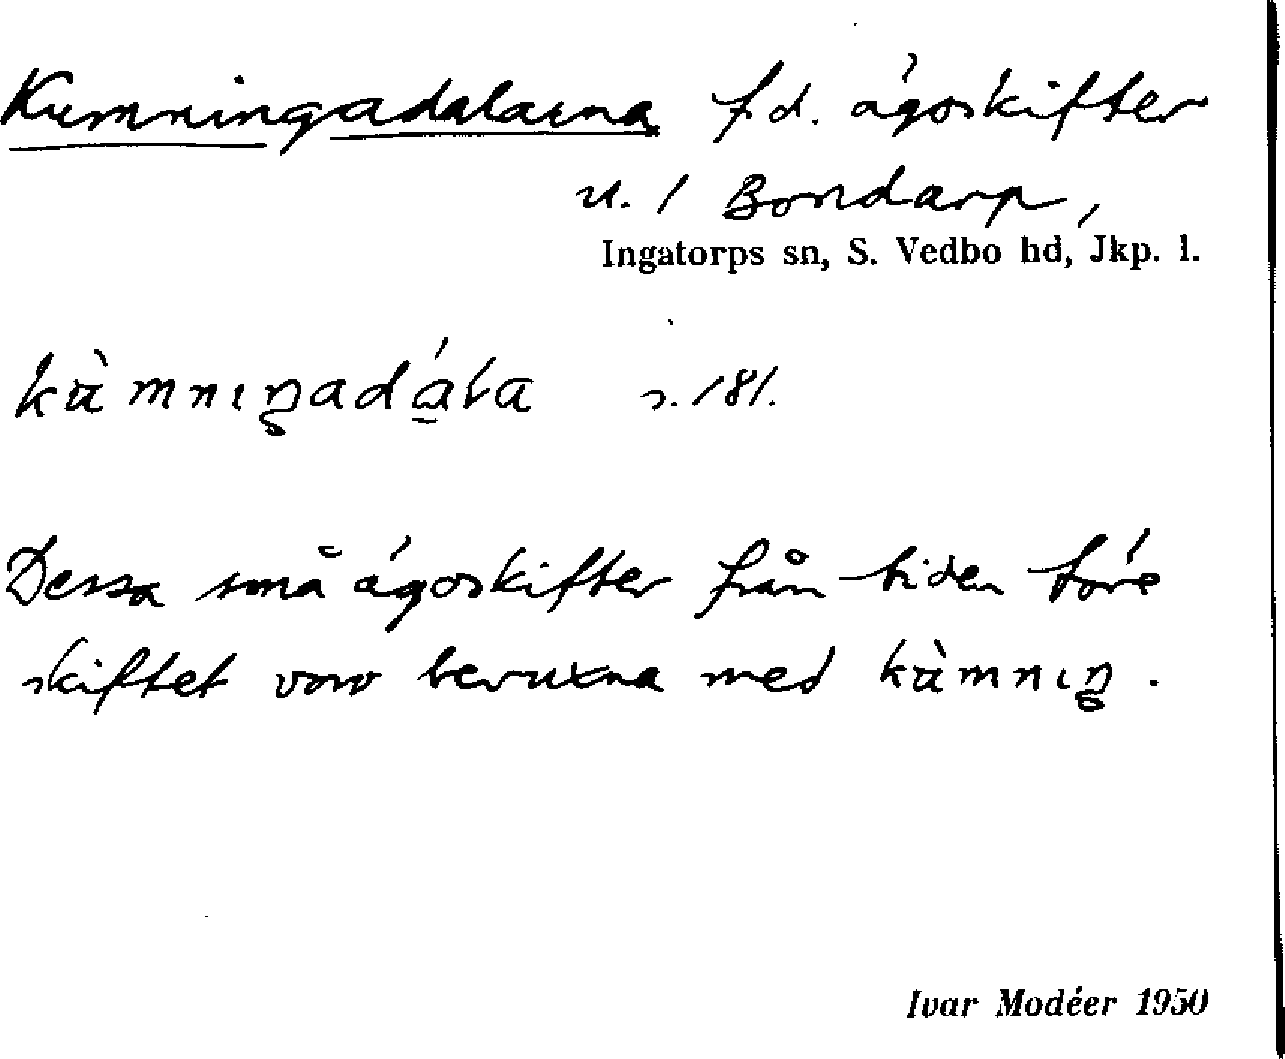 Kumningadalarna f.d. ägoskifter
u. 1 Bondarp,
Ingatorps sn, S. Vedbo hd, Jkp. l.
kùmnıŋadála s. 181.
Dessa små ägoskifter från tiden före
skiftet voro bevuxna med kùmnıŋ.
Ivar Modéer 1950